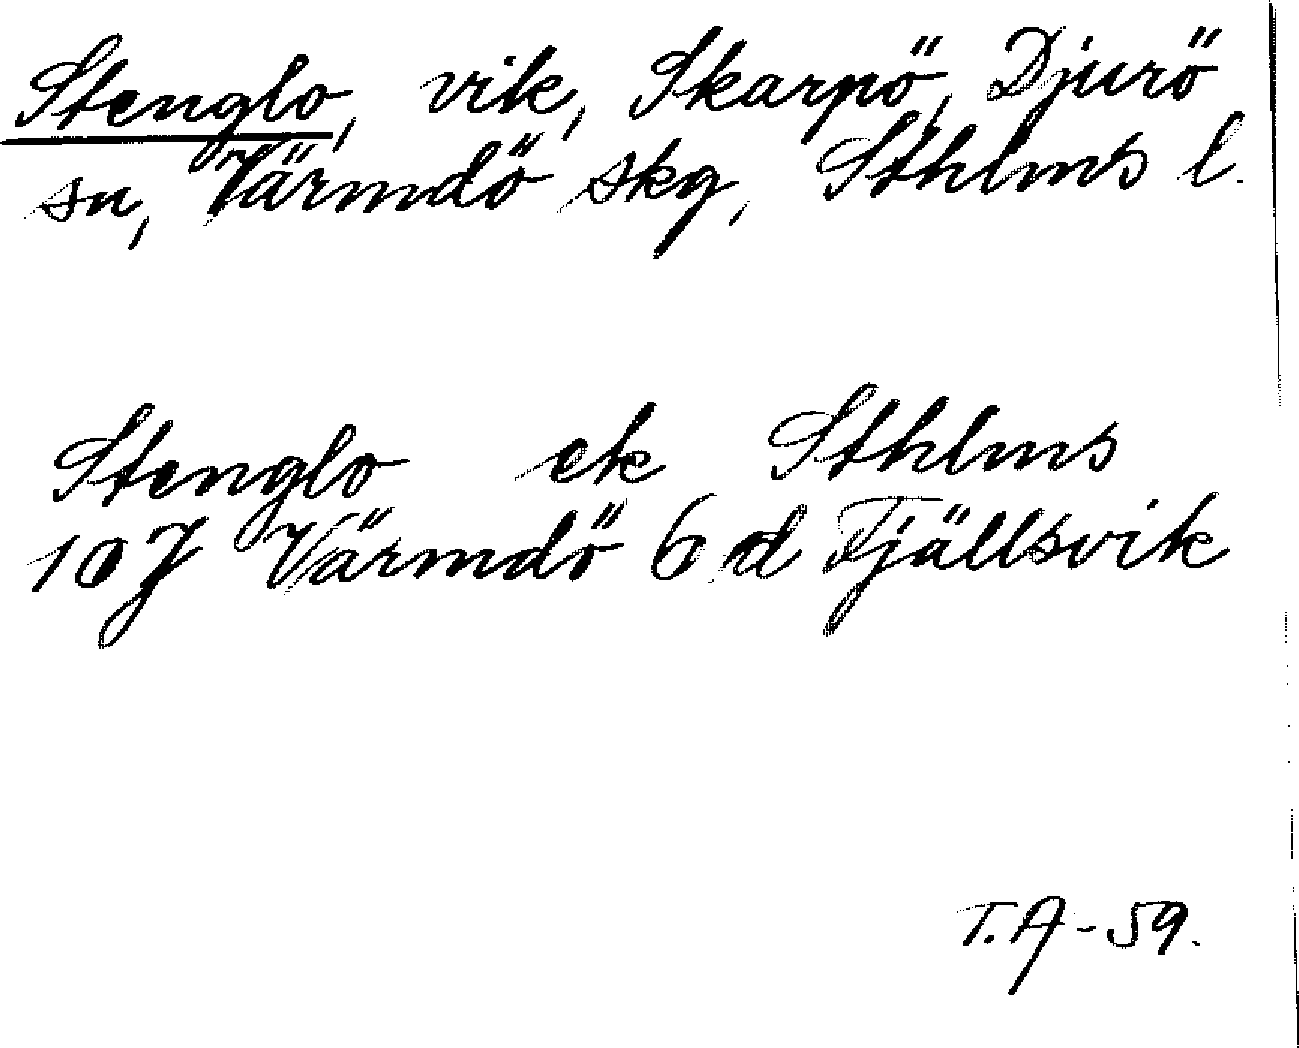 Stenglo, vik, Skarpö, Djurö
sn, Värmdö skg, Sthlms l.
Stenglo ek Sthlms
10 J Värmdö 6 d Fjällsvik
T.A-59.